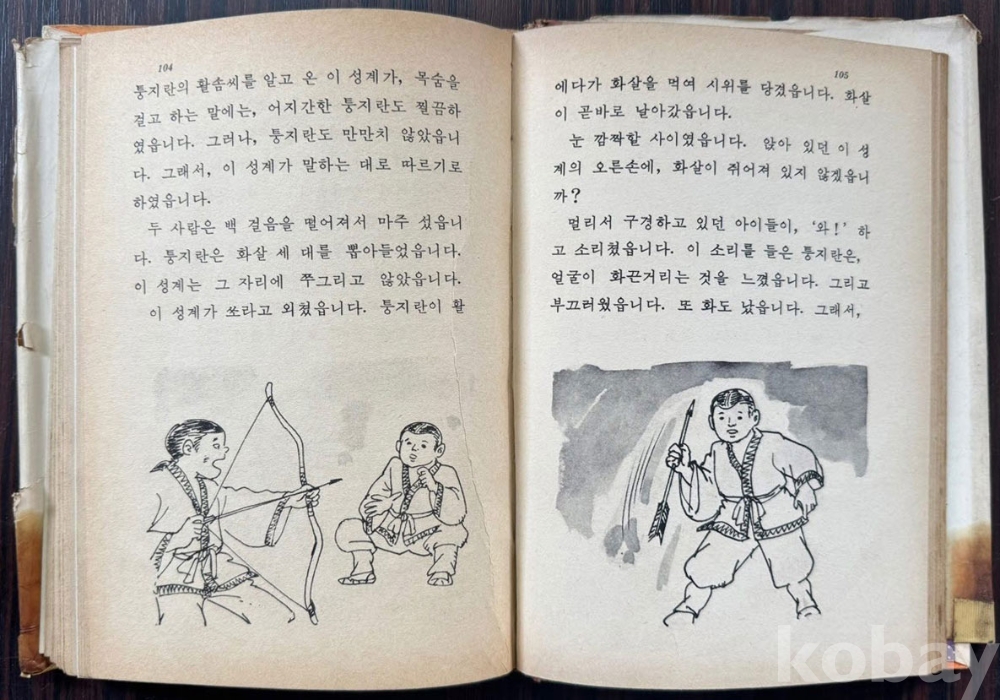 104
퉁지란의 활솜씨를 알고 온 이 성계가, 목숨을
걸고 하는 말에는, 어지간한 퉁지란도 찔끔하
였읍니다. 그러나, 퉁지란도 만만치 않았읍니
다. 그래서, 이 성계가 말하는 대로 따르기로
하였읍니다.
두 사람은 백 걸음을 떨어져서 마주 섰읍니
다. 퉁지란은 화살 세 대를 뽑아들었읍니다.
이 성계는 그 자리에 쭈그리고 앉았읍니다.
이 성계가 쏘라고 외쳤읍니다. 퉁지란이 활
105
에다가 화살을 먹여 시위를 당겼읍니다. 화살
이 곧바로 날아갔읍니다.
눈 깜짝할 사이였읍니다. 앉아 있던 이 성
계의 오른손에, 화살이 쥐어져 있지 않겠읍니
까?
멀리서 구경하고 있던 아이들이, ‘와!’ 하
고 소리쳤읍니다. 이 소리를 들은 퉁지란은,
얼굴이 화끈거리는 것을 느꼈읍니다. 그리고
부끄러웠읍니다. 또 화도 났읍니다. 그래서,
kobay